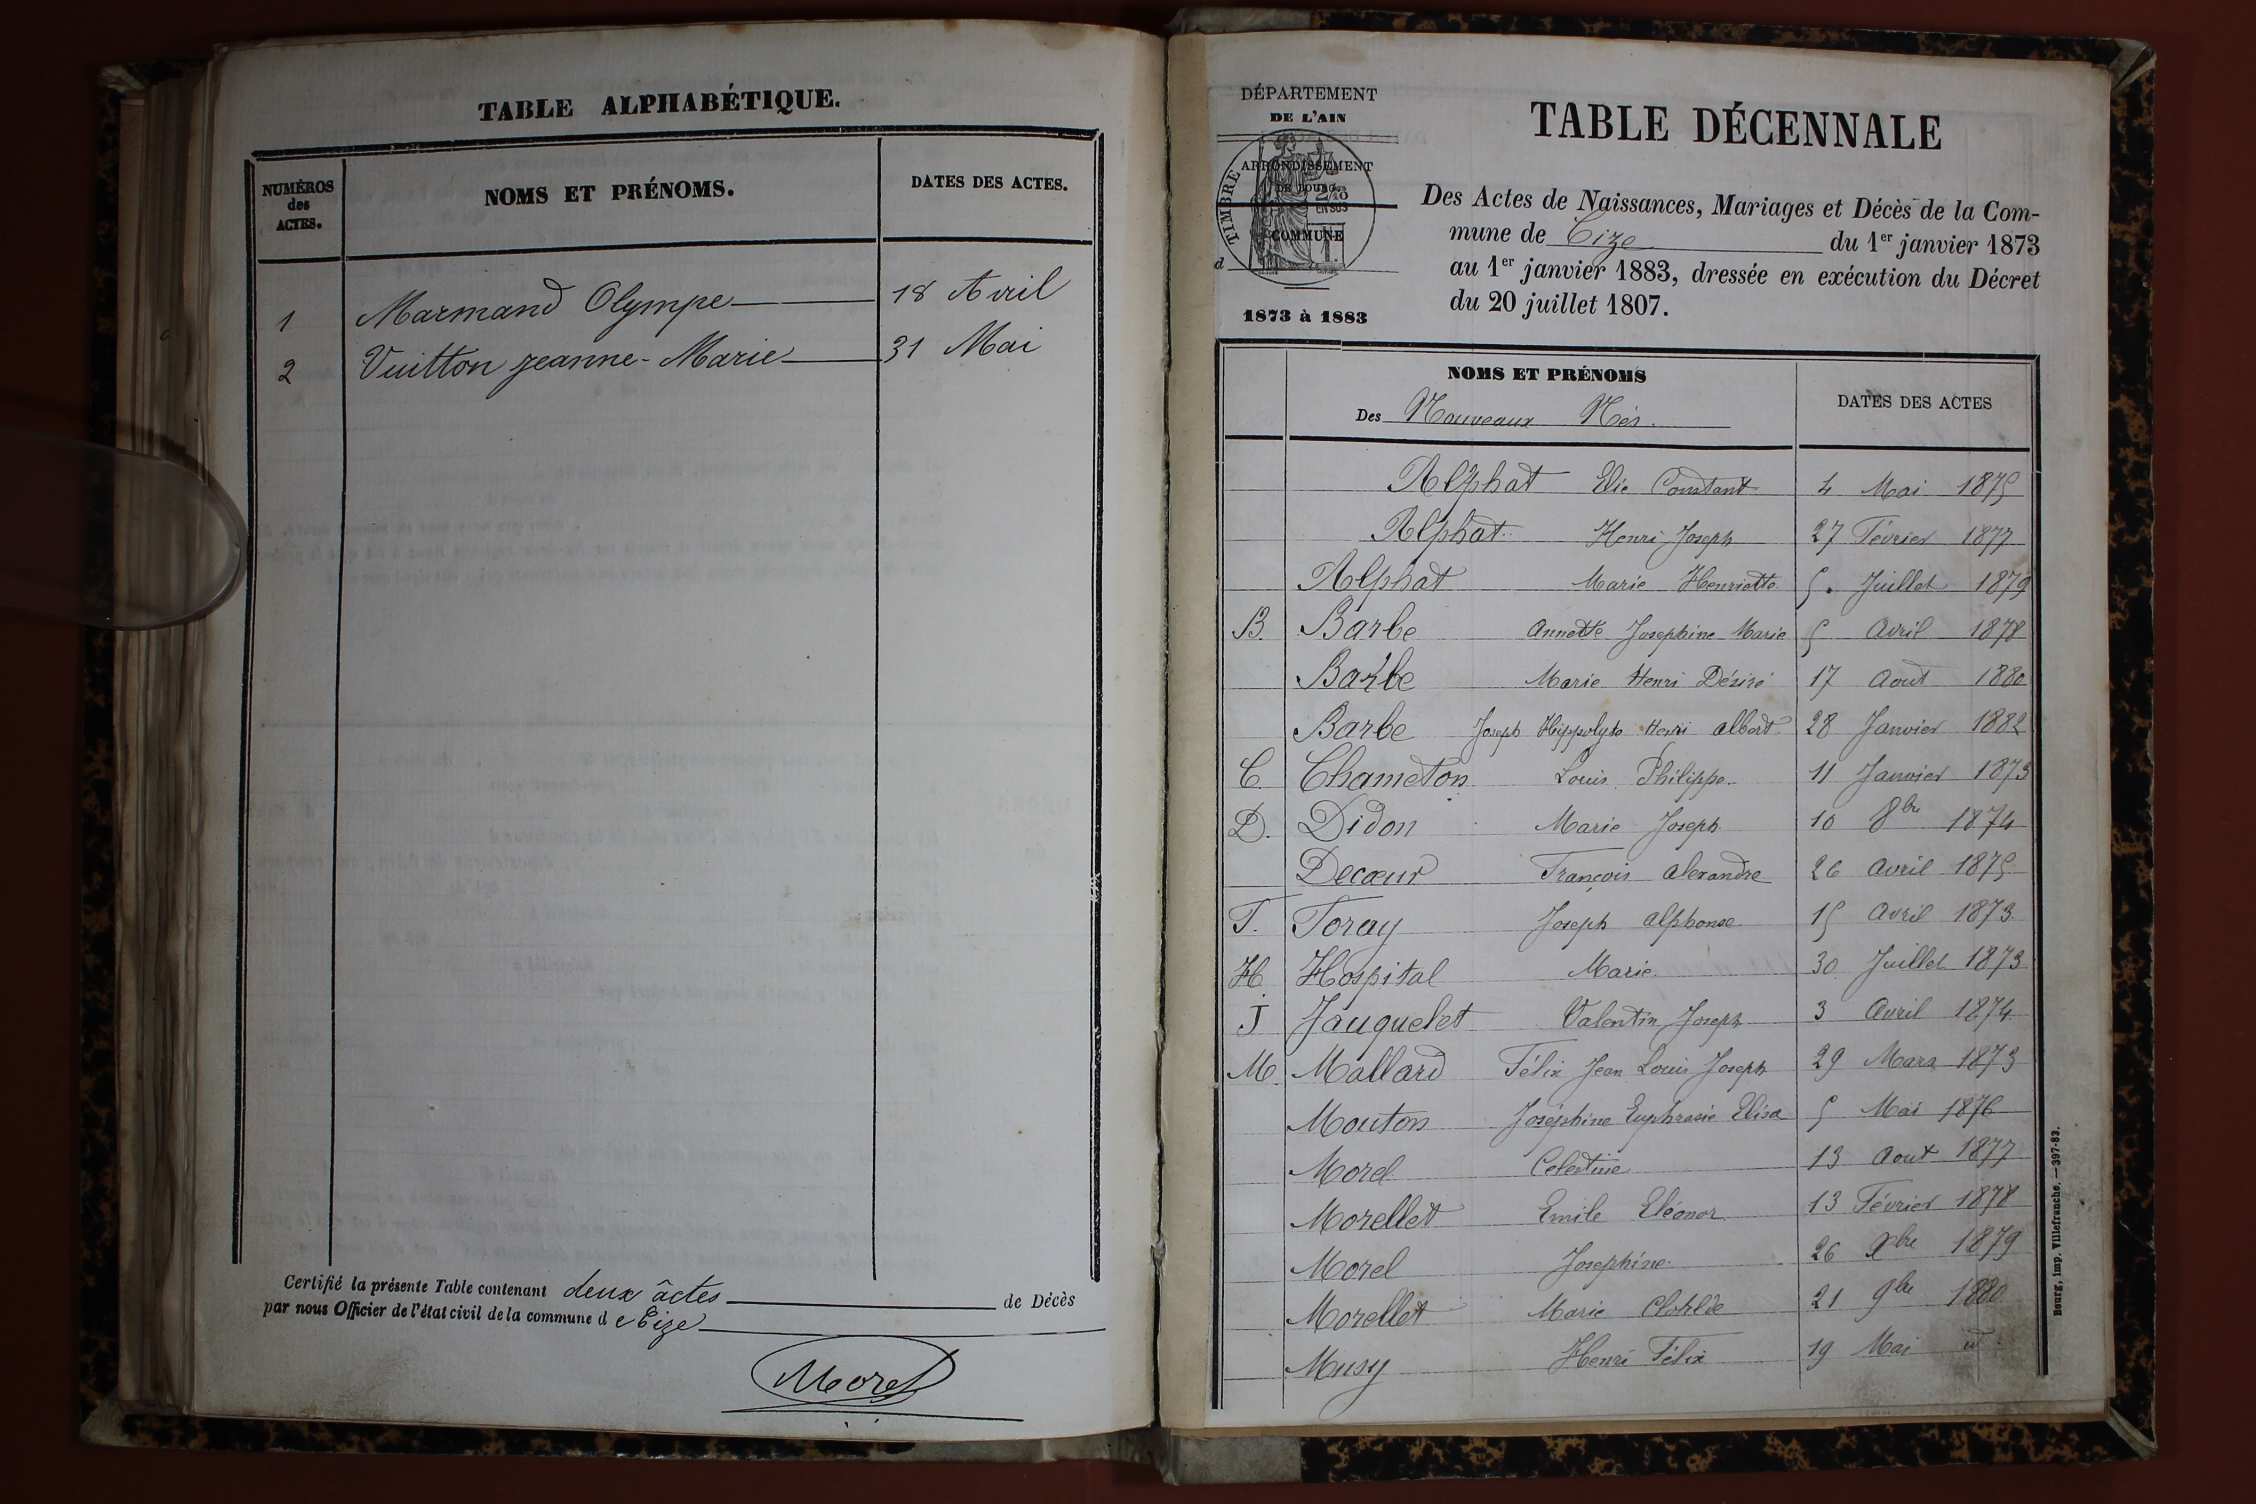 TABLE ALPHABÉTIQUE.
NUMÉROS des ACTES.
NOMS ET PRÉNOMS.
DATES DES ACTES.
1 Marmand Olympe 18 Avril
2 Vuitton jeanne-Marie 31 Mai
Certifié la présente Table contenant deux âctes de Décès
par nous Officier de l'état civil de la commune d e Cize
Morel
DÉPARTEMENT
DE L'AIN
ARRONDISSEMENT
DE BOURG.
TIMBRE
2/10
EN SUS
COMMUNE
d
1873 à 1883
TABLE DÉCENNALE
Des Actes de Naissances, Mariages et Décès de la Com-
mune de Cize du 1er janvier 1873
au 1er janvier 1883, dressée en exécution du Décret
du 20 juillet 1807.
NOMS ET PRÉNOMS
Des Nouveaux Nés.
DATES DES ACTES
Alphat Elie Constant 4 Mai 1875
Alphat Henri Joseph 27 Février 1877
Alphat Marie Henriette 5. Juillet 1879
B. Barbe Annette Josephine Marie 5 Avril 1878
Barbe Marie Henri Désiré 17 Aout 1880
Barbe Joseph Hippolyte Henri Albert 28 Janvier 1882
C Chameton Louis Philippe 11 Janvier 1873
D. Didon Marie Joseph 10 8bre 1874
Decœur François Alexandre 26 Avril 1875
F. Foray Joseph Alphonse 15 Avril 1873
H. Hospital Marie 30 Juillet 1873
J Jauquelet Valentin Joseph 3 Avril 1874
M. Mallard Félix Jean Louis Joseph 29 Mars 1873
Mouton Joséphine Euphrasie Elisa 5 Mai 1876
Morel Celestine 13 Aout 1877
Morellet Emile Eléonor 13 Février 1878
Morel Josephine 26 Xbre 1879
Morellet Marie Clotilde 21 9bre 1880
Musy Henri Félix 19 Mai
Bourg, imp. Villefranche. — 397-83.